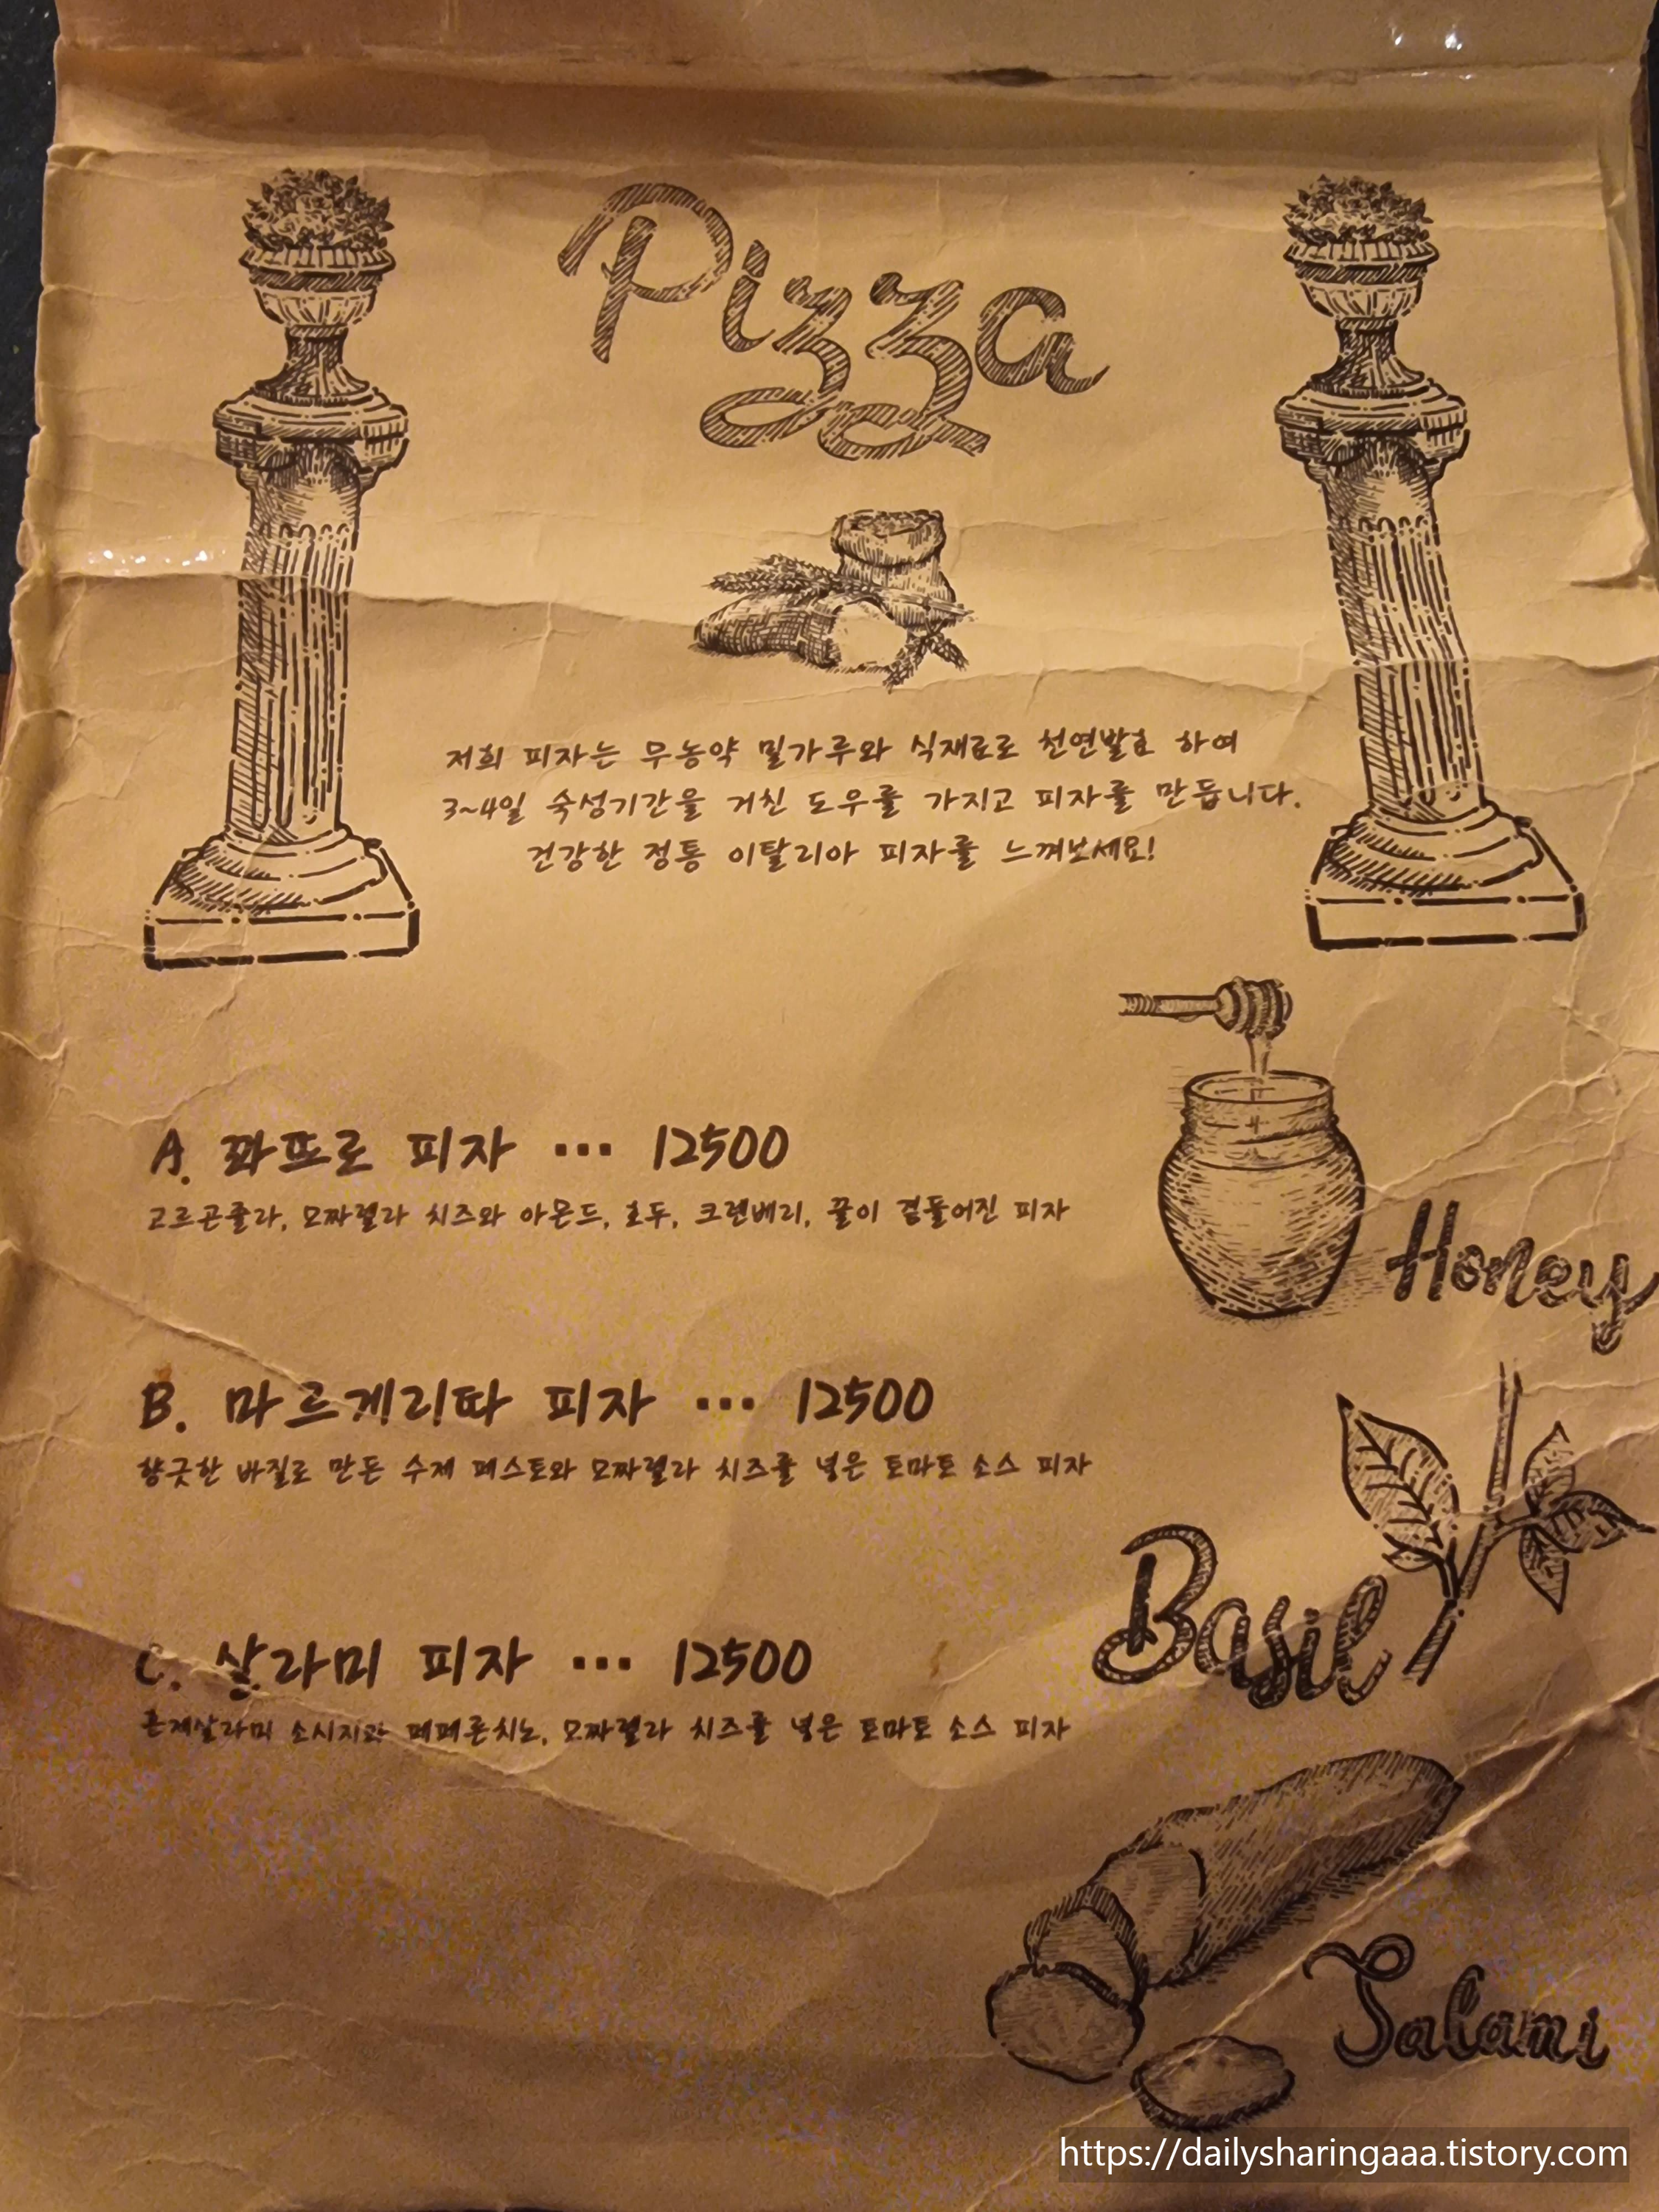 Pizza
저희 피자는 무농약 밀가루와 식재료로 천연발효 하여
3~4일 숙성기간을 거친 도우를 가지고 피자를 만듭니다.
건강한 정통 이탈리아 피자를 느껴보세요!
A. 콰뜨로 피자 ... 12500
고르곤졸라, 모짜렐라 치즈와 아몬드, 호두, 크랜베리, 꿀이 곁들어진 피자
Honey
B. 마르게리따 피자 ... 12500
향긋한 바질로 만든 수제 페스토와 모짜렐라 치즈를 넣은 토마토 소스 피자
Basil
C. 살라미 피자 ... 12500
수제살라미 소시지와 페페론치노, 모짜렐라 치즈를 넣은 토마토 소스 피자
Salami
https://dailysharingaaa.tistory.com